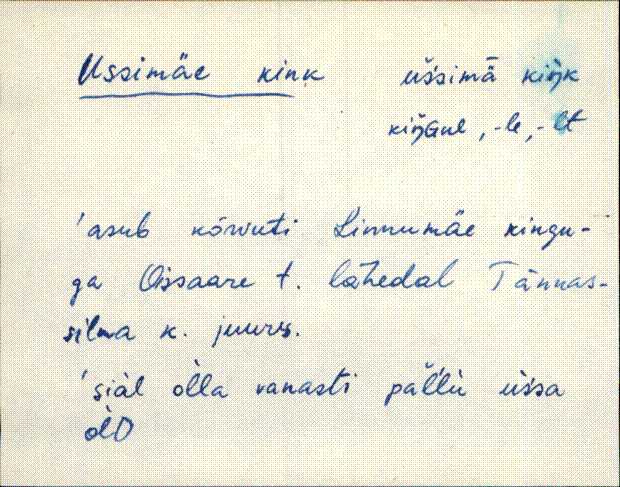 Ussimäe kink uśsimā kiŋk
kiŋGul, -le, -lt
'asub kõrvuti Linnumäe kingu-
ga Oissaare t. lähedal Tännas-
silma k. juures.
'siàl òlla vanasti pal'l'ù us'sa
òlD